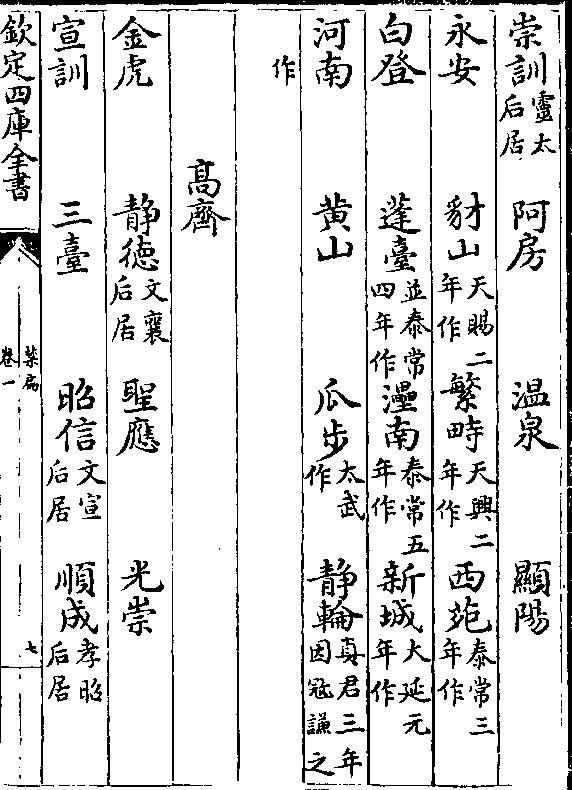 崇訓靈太后居 阿房 温泉 顯陽
永安 豺山天賜二年作 繁畤天興二年作 西苑泰常三年作
白登 蓬臺並泰常四年作 灅南泰常五年作 新城大延元年作
河南 黄山 瓜步太武作 静輪真君三年因冦謙之
作
高齊
金虎 静徳文襄后居 聖應 光崇
宣訓 三臺 昭信文宣后居 順成孝昭后居
欽定四庫全書 禁扁 卷一 七